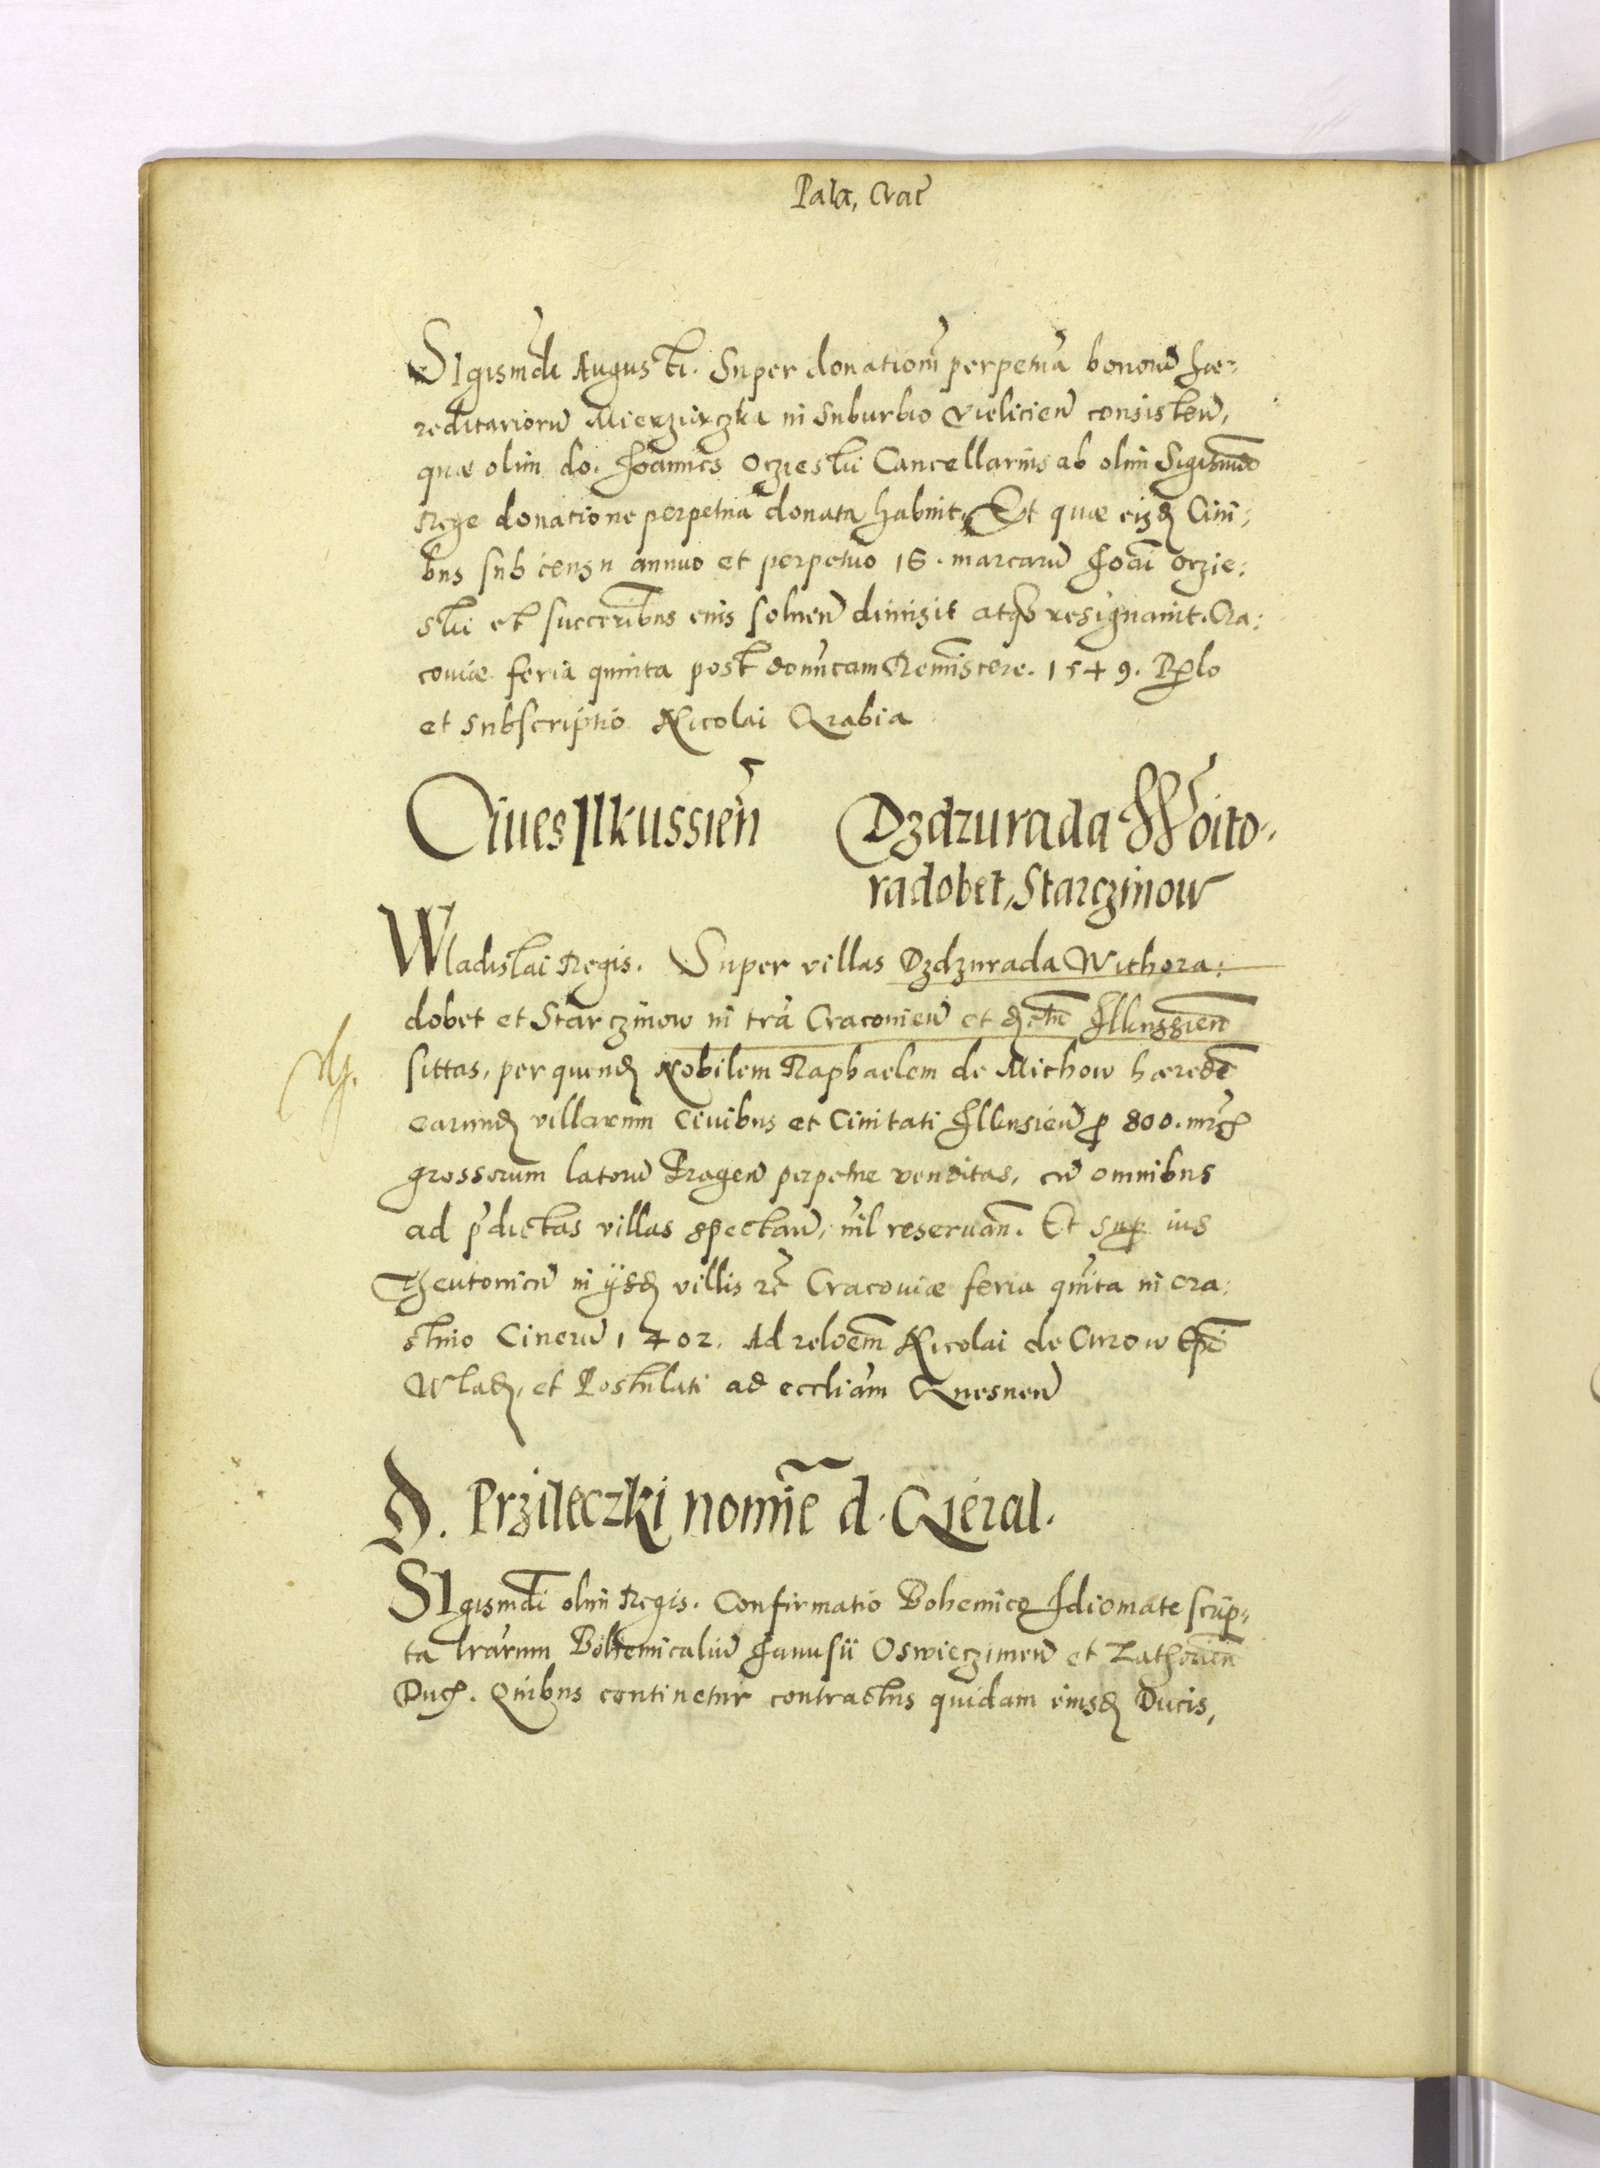 Pala, Crac̃
Sigismũdi Augusti. Super donationẽ perpetuã bonorũ hæ-
reditariorũ Mierziączka in Suburbio Vielicień consisteñ,
quæ olim do. Joannes Oczieski Cancellarius ab olim Sigismũdo
Rege donatione perpetua donata habuit. Et quæ eisd. Ciui-
bus sub censu annuo et perpetuo 16. marcarũ Joañi Oczie-
ski et succerībus eius soluen̄ dimisit atqȝ resignauit. Cra-
couiæ feria quinta post domīcam Remīscere. 1549. R̃lo
et subscriptio Nicolai Grabia
Ciues Ilkussień Dzdzurada Woito-
radobet, Starczinow
Wladislai Regis. Super villas Dzdzurada Withora-
dobet et Starczinow in trã Cracouień et distr̃ Ilkussień
sittas, per quend. Nobilem Raphaelem de Michow hæredẽ
earund. villarum Ciuibus et Ciuitati Ilkusień ꝓ 800. mrc̃
grossorum latorũ Prageñ perpetue venditas, cũ omnibus
ad p̃dictas villas spectañ, nīl reseruañ. Et suꝑ ius
Theutonicũ in ijsd. villis rc̃ Cracouiæ feria quīta in cra-
stino Cinerũ 1402. Ad reloẽm Nicolai de Curow Epī
Wlad, et Postulati ad eccliam Gnesneñ
D. Przileczki nomĩe d. Gieral.
Sigismũdi olim Regis. Confirmatio Bohemico Idiomate scrip-
ta lrarum Bohemicaliũ Janusii Oswieczimeñ et Zathorień
Duc̃. Quibus continetur contractus quidam eiusd. Ducis,